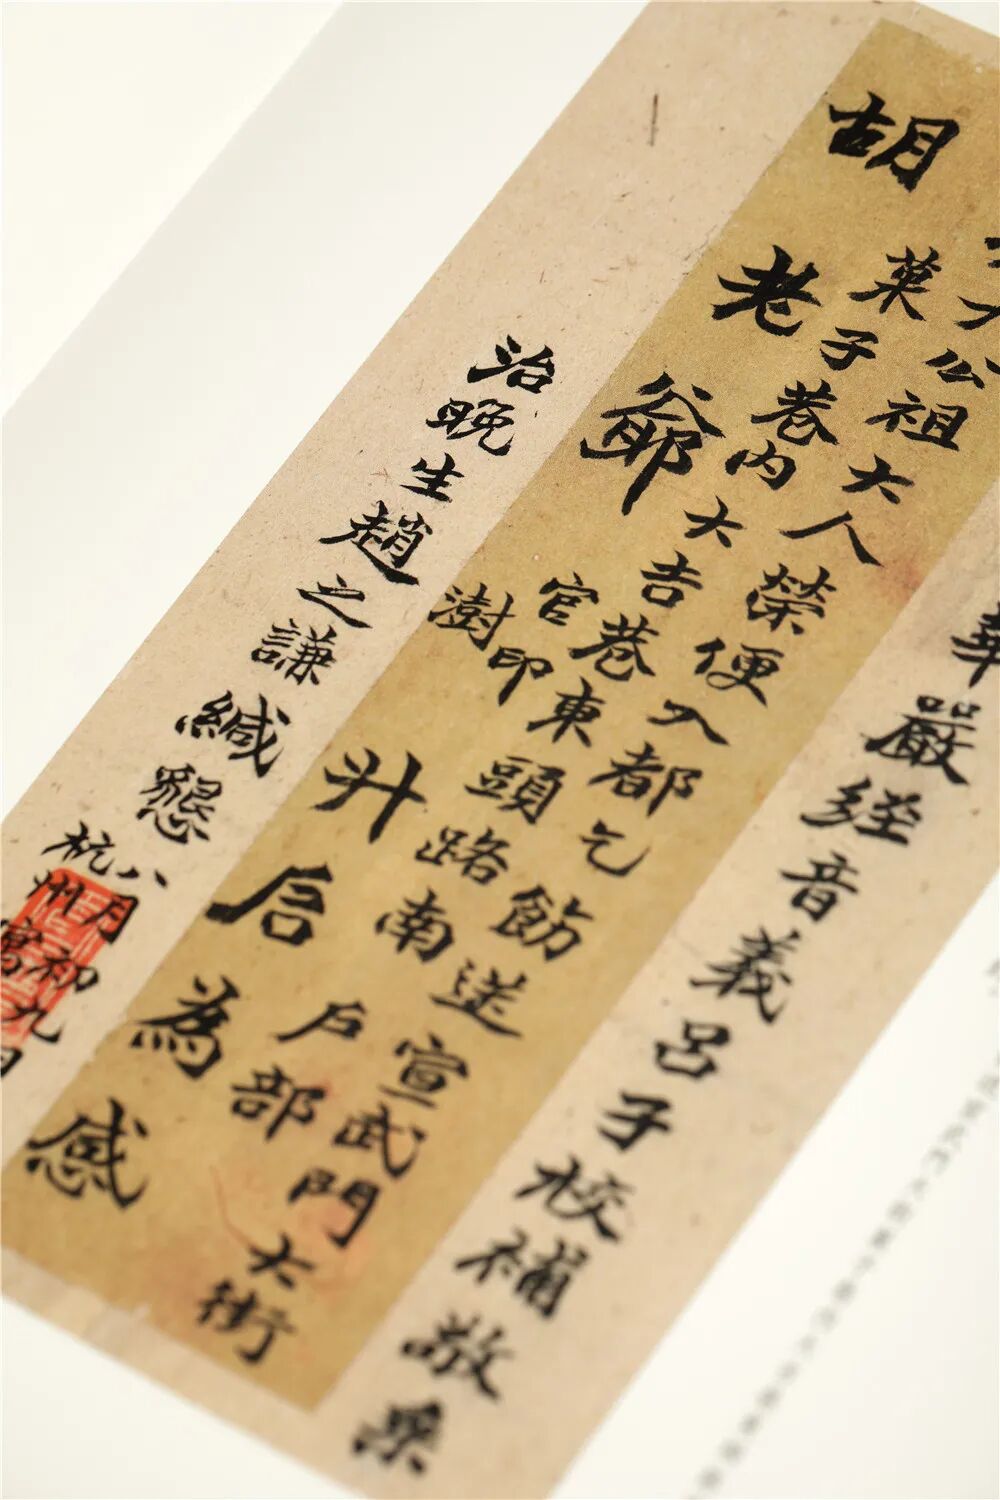 華嚴經音義呂子校補敬
大公祖大人榮便入都乞飭送宣武門大街
菓子巷內大吉巷東頭路南戶部
胡老爺官印澍升启為感
治晚生趙之謙緘懇
八月初九日
杭州寓